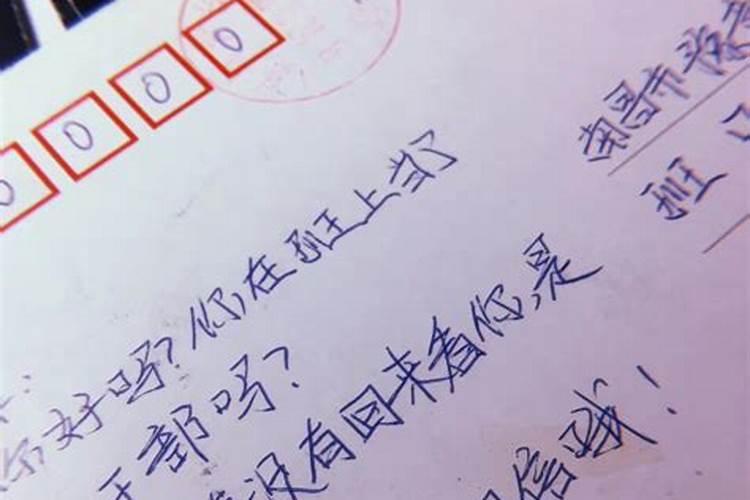 0 0 0 0
南昌市
班
你好吗？你在班上当了
干部吗？
没有回来看你,是
信哦！